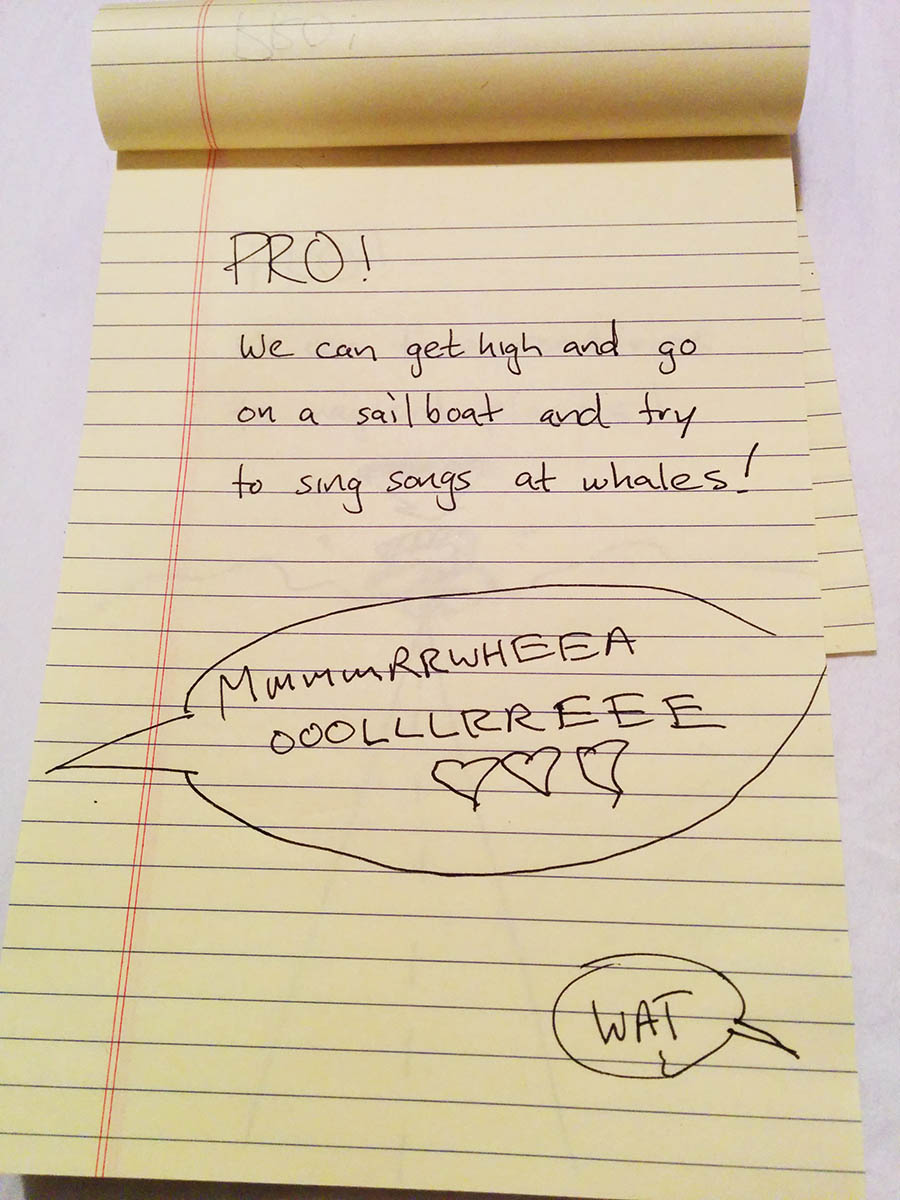 PRO!
We can get high and go
on a sailboat and try
to sing songs at whales!
MmmmmRRWHEEEA
OOOLLLRREEE
♡♡♡
WAT